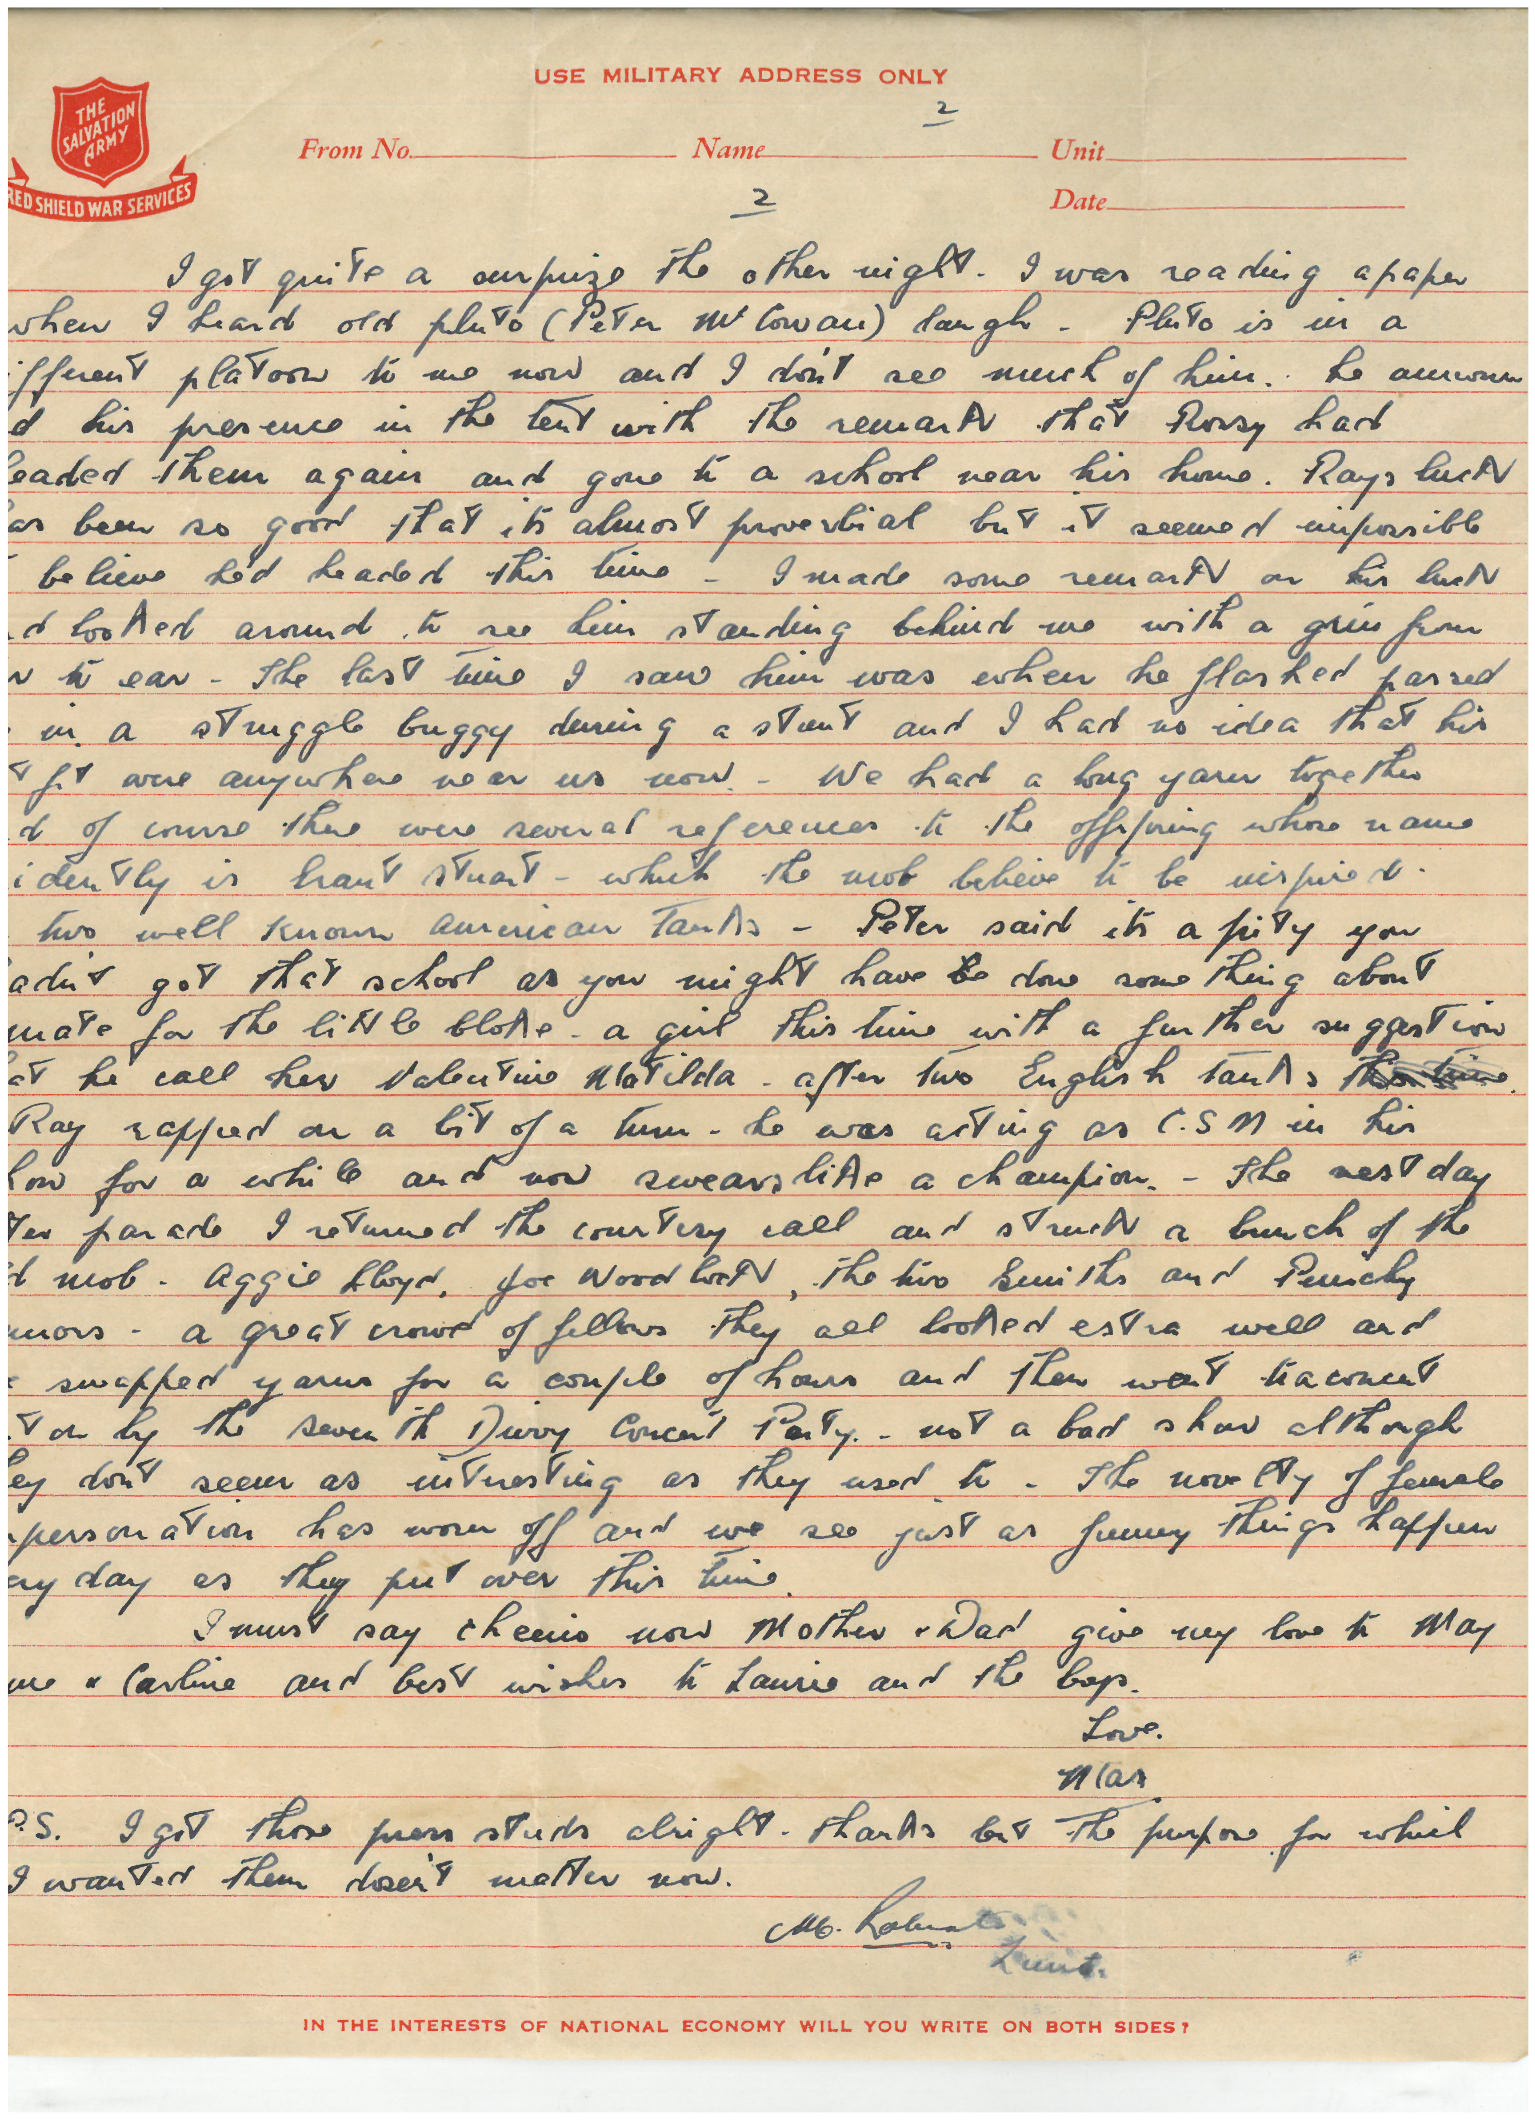 USE MILITARY ADDRESS ONLY
2
THE SALVATION ARMY
RED SHIELD WAR SERVICES
From No. Name Unit
2
Date
I got quite a surprize the other night. I was reading a paper
when I heard old pluto (Peter McCowan) laugh - Pluto is in a
ifferent platoon to me now and I don't see much of him. he announ
d his presence in the tent with the remark that Rossy had
eaded them again and gone to a school near his home. Rays luck
as been so good that its almost proverbial but it seemed impossible
believe he'd headed this time - I made some remark on his luck
d looked around to see him standing behind me with a grin from
r to ear - The last time I saw him was when he flashed passed
in a struggle buggy during a stunt and I had no idea that his
t fit were anywhere near us now - We had a long yarn together
d of course there were several references to the offspring whose name
idently is Grant Stuart - which the mob believe to be inspired
two well known american Tanks - Peter said its a pity you
adn't got that school as you might have done something about
mate for the little bloke - a girl this time with a further suggestion
at he call her Valentine Matilda - after two English tanks this time.
Ray rapped on a bit of a turn - he was acting as C.S.M in his
how for a while and now swears like a champion. - The next day
ter parade I returned the courtesy call and struck a bunch of the
d mob - Aggie Lloyd, Joe Woodlock, the two Smiths and Punchy
nnors - a great crowd of fellows they all looked extra well and
e swapped yarns for a couple of hours and then went to a concert
t on by the Seventh Divvy Concert Party. - not a bad show although
ey don't seem as interesting as they used to - The novelty of female
personation has worn off and we see just as funny things happen
ery day as they put over this time.
I must say cheerio now Mother & Dad give my love to May
me & Carline and best wishes to Laurie and the boys.
Love.
Max
P.S. I got those press studs alright - thanks but the purpose for which
I wanted them doesn't matter now.
M. Roberts
Lieut.
IN THE INTERESTS OF NATIONAL ECONOMY WILL YOU WRITE ON BOTH SIDES?